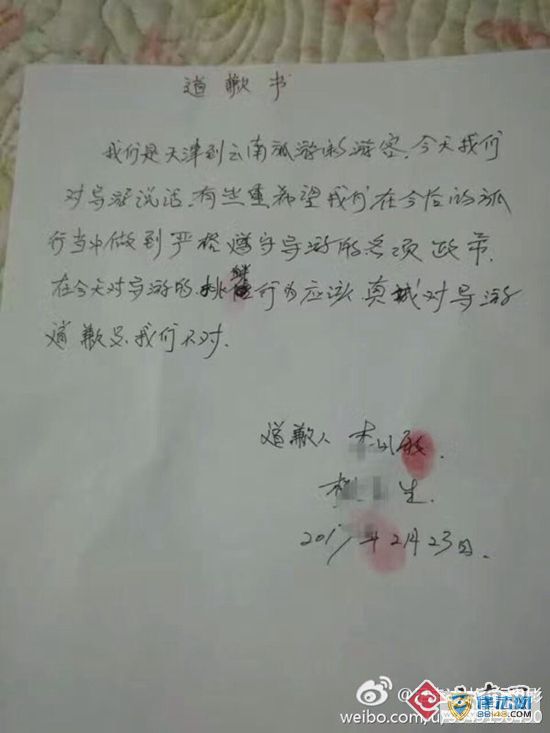 道歉书
我们是天津到云南旅游的游客,今天我们
对导游说话,有些重希望我们在今后的旅
行当中做到严格遵守导游的各项政策,
在今天对导游的挑衅行为应该真诚对导游
道歉是我们不对.
道歉人
生.
2017年2月23日.
weibo.com/u/
律法网